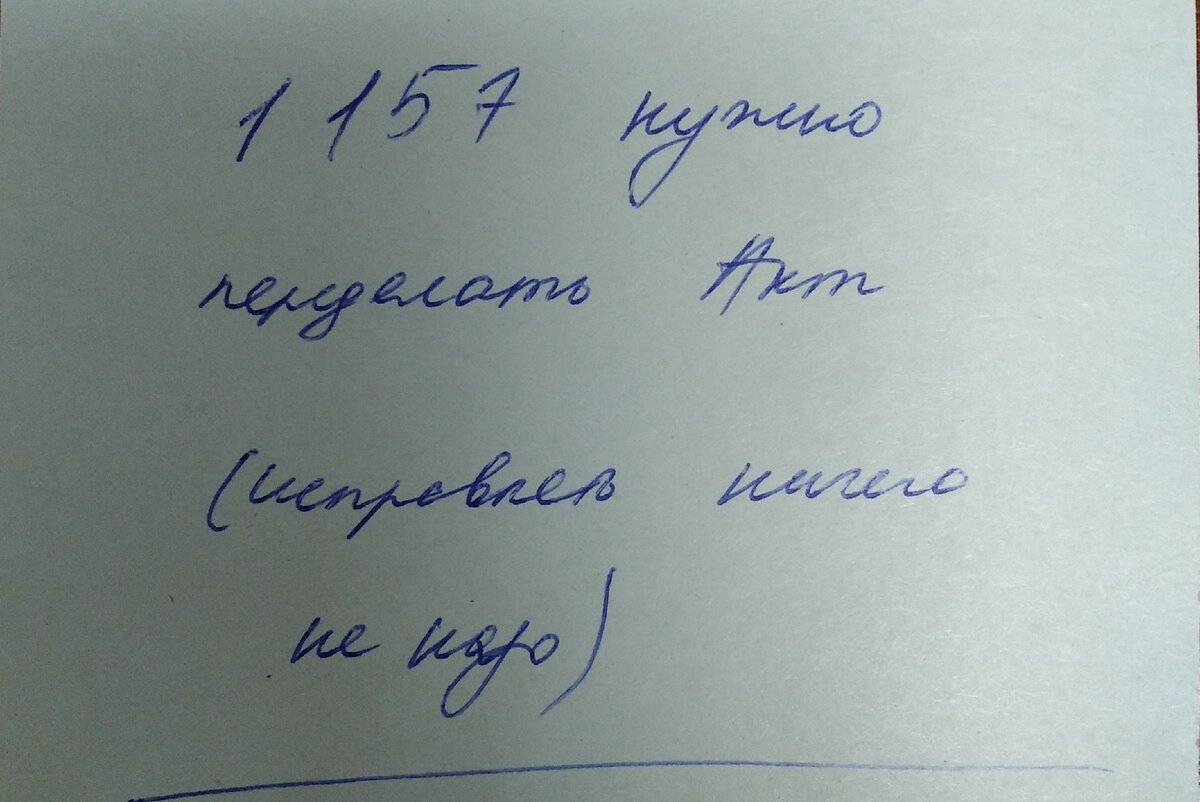 1157 нужно
переделать Акт
(исправлять ничего
не надо)